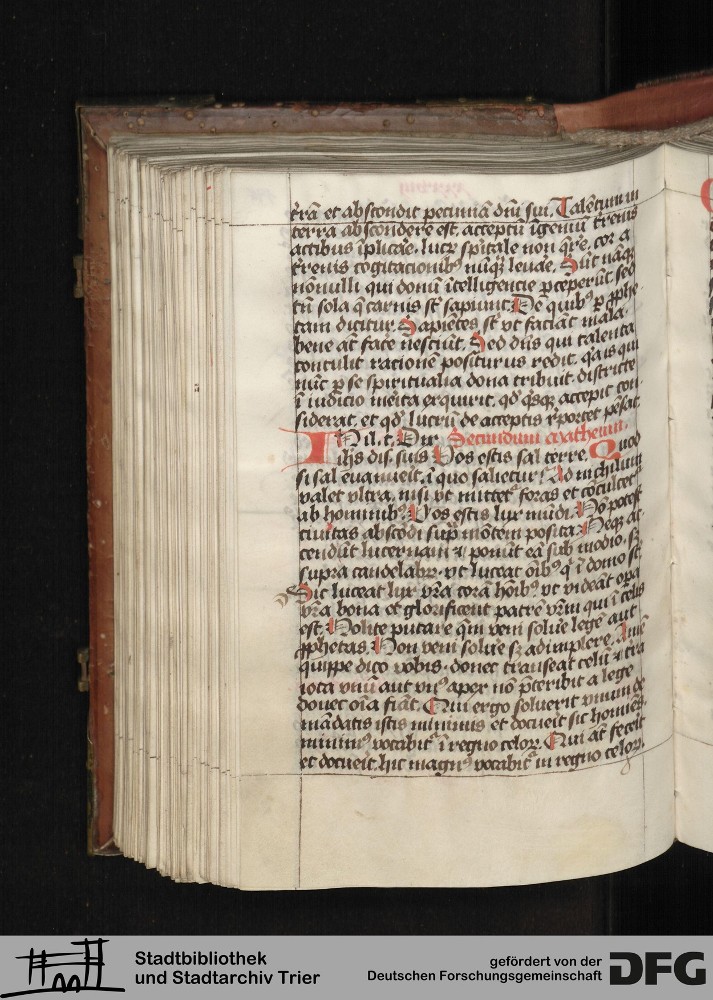 t̃rā et abscondit pecuniā dñi sui. Talentum in
terra abscondere est. acceptū īgeniū t̃renis
actibus īplicãe. lucr̃ spũale non q̃re. cor a
t̃renis cogitacionibꝰ nūqꝫ leuãe. Sūt nāqꝫ
nōnulli qui donū ītelligencie ꝑceperūt sed
tñ sola q̃ carnis st̃ sapiunt. De quibꝰ ꝑ ꝓphe
tam dicitur. Sapiētes st̃ vt faciāt mala.
bene aūt face nesciūt. Sed dñs qui talenta
contulit rationē positurus redit. q̃a is qui
nūc ꝑ se spiritualia dona tribuit. districte
ī iudicio merita exquirit. qd̃ qsqꝫ accepit con
siderat. et qd̃ lucrū de acceptis r̃portet pēsat.
Secundum matheum.
In il. t. Dix
ihs dis. suis Vos estis sal terre. Quod
si sal euanueit. ī quo salietur? Ad nichilum
valet vltra. nisi vt mittetᷣ foras et cōculcetᷣ
ab hominibꝰ. Vos estis lux mūdi. Nō potest
ciuitas abscōdi supᷓ mōtem posita. Neqꝫ ac
cendūt lucernam ⁊ ponūt eā sub modio. sꝫ
supra candelabꝝ. vt luceat oībꝰ q̃ ī domo st̃.
Sic luceat lux vr̃a corā hōibꝰ. vt videāt opa
vr̃a bona et glorificent patrē vr̃m qui ī celis
est. Nolite putare qm̃ veni soluẽ legē aut
ꝓphetas. Non veni soluẽ sꝫ adimplere. Amē
quippe dico vobis. donec transeat celū ⁊ t̃ra
iota vnū aut vnꝰ apex nō p̃teribit a lege
donec oīa fiāt. Qui ergo soluerit vnum de
mādatis istis minimis et docueit sic homiēs.
minimꝰ vocabitᷣ ī regno celoꝝ. Qui aūt feceit
et docueit. hic magnꝰ vocabitᷣ in regno celoꝝ.
Stadtbibliothek
und Stadtarchiv Trier
gefördert von der
Deutschen Forschungsgemeinschaft
DFG